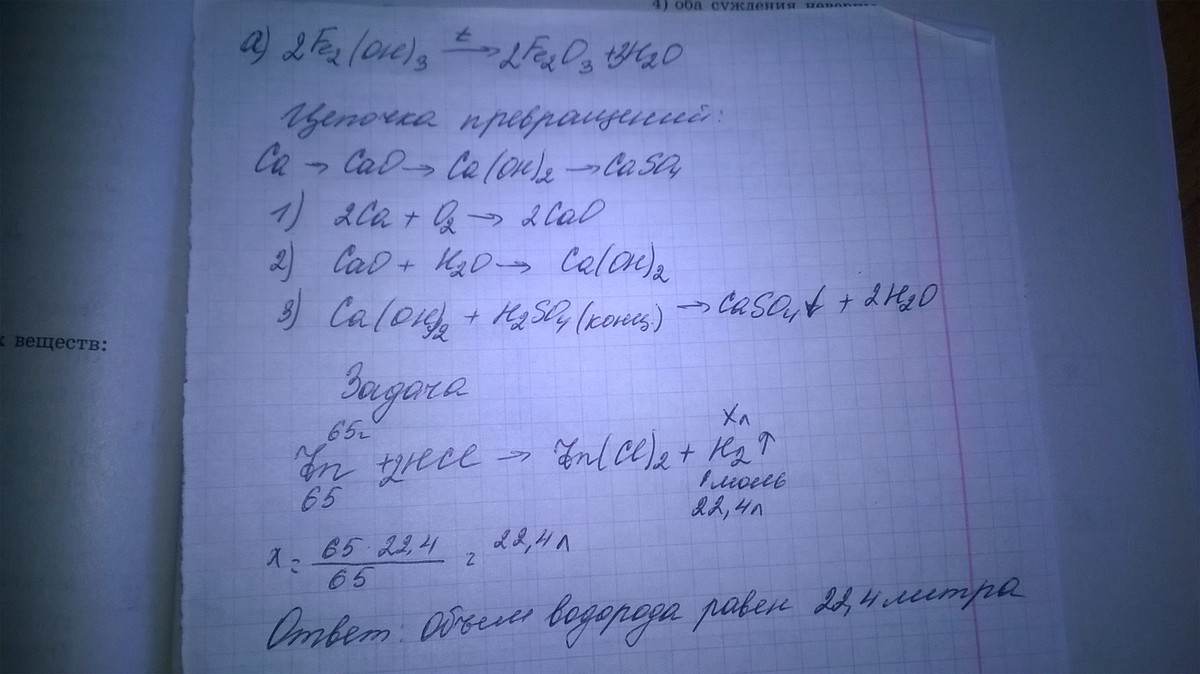 4) оба суждения неверны
а) 2Fe₂(OH)₃ →t 2Fe₂O₃ + 3H₂O
Цепочка превращений:
Ca → CaO → Ca(OH)₂ → CaSO₄
1) 2Ca + O₂ → 2CaO
2) CaO + H₂O → Ca(OH)₂
3) Ca(OH)₂ + H₂SO₄ (конц.) → CaSO₄↓ + 2H₂O
к веществ:
Задача
65г xл
Zn + 2HCl → Zn(Cl)₂ + H₂↑
65 1 моль
22,4л
x = 65 · 22,4 / 65 = 22,4 л
Ответ: Объем водорода равен 22,4 литра